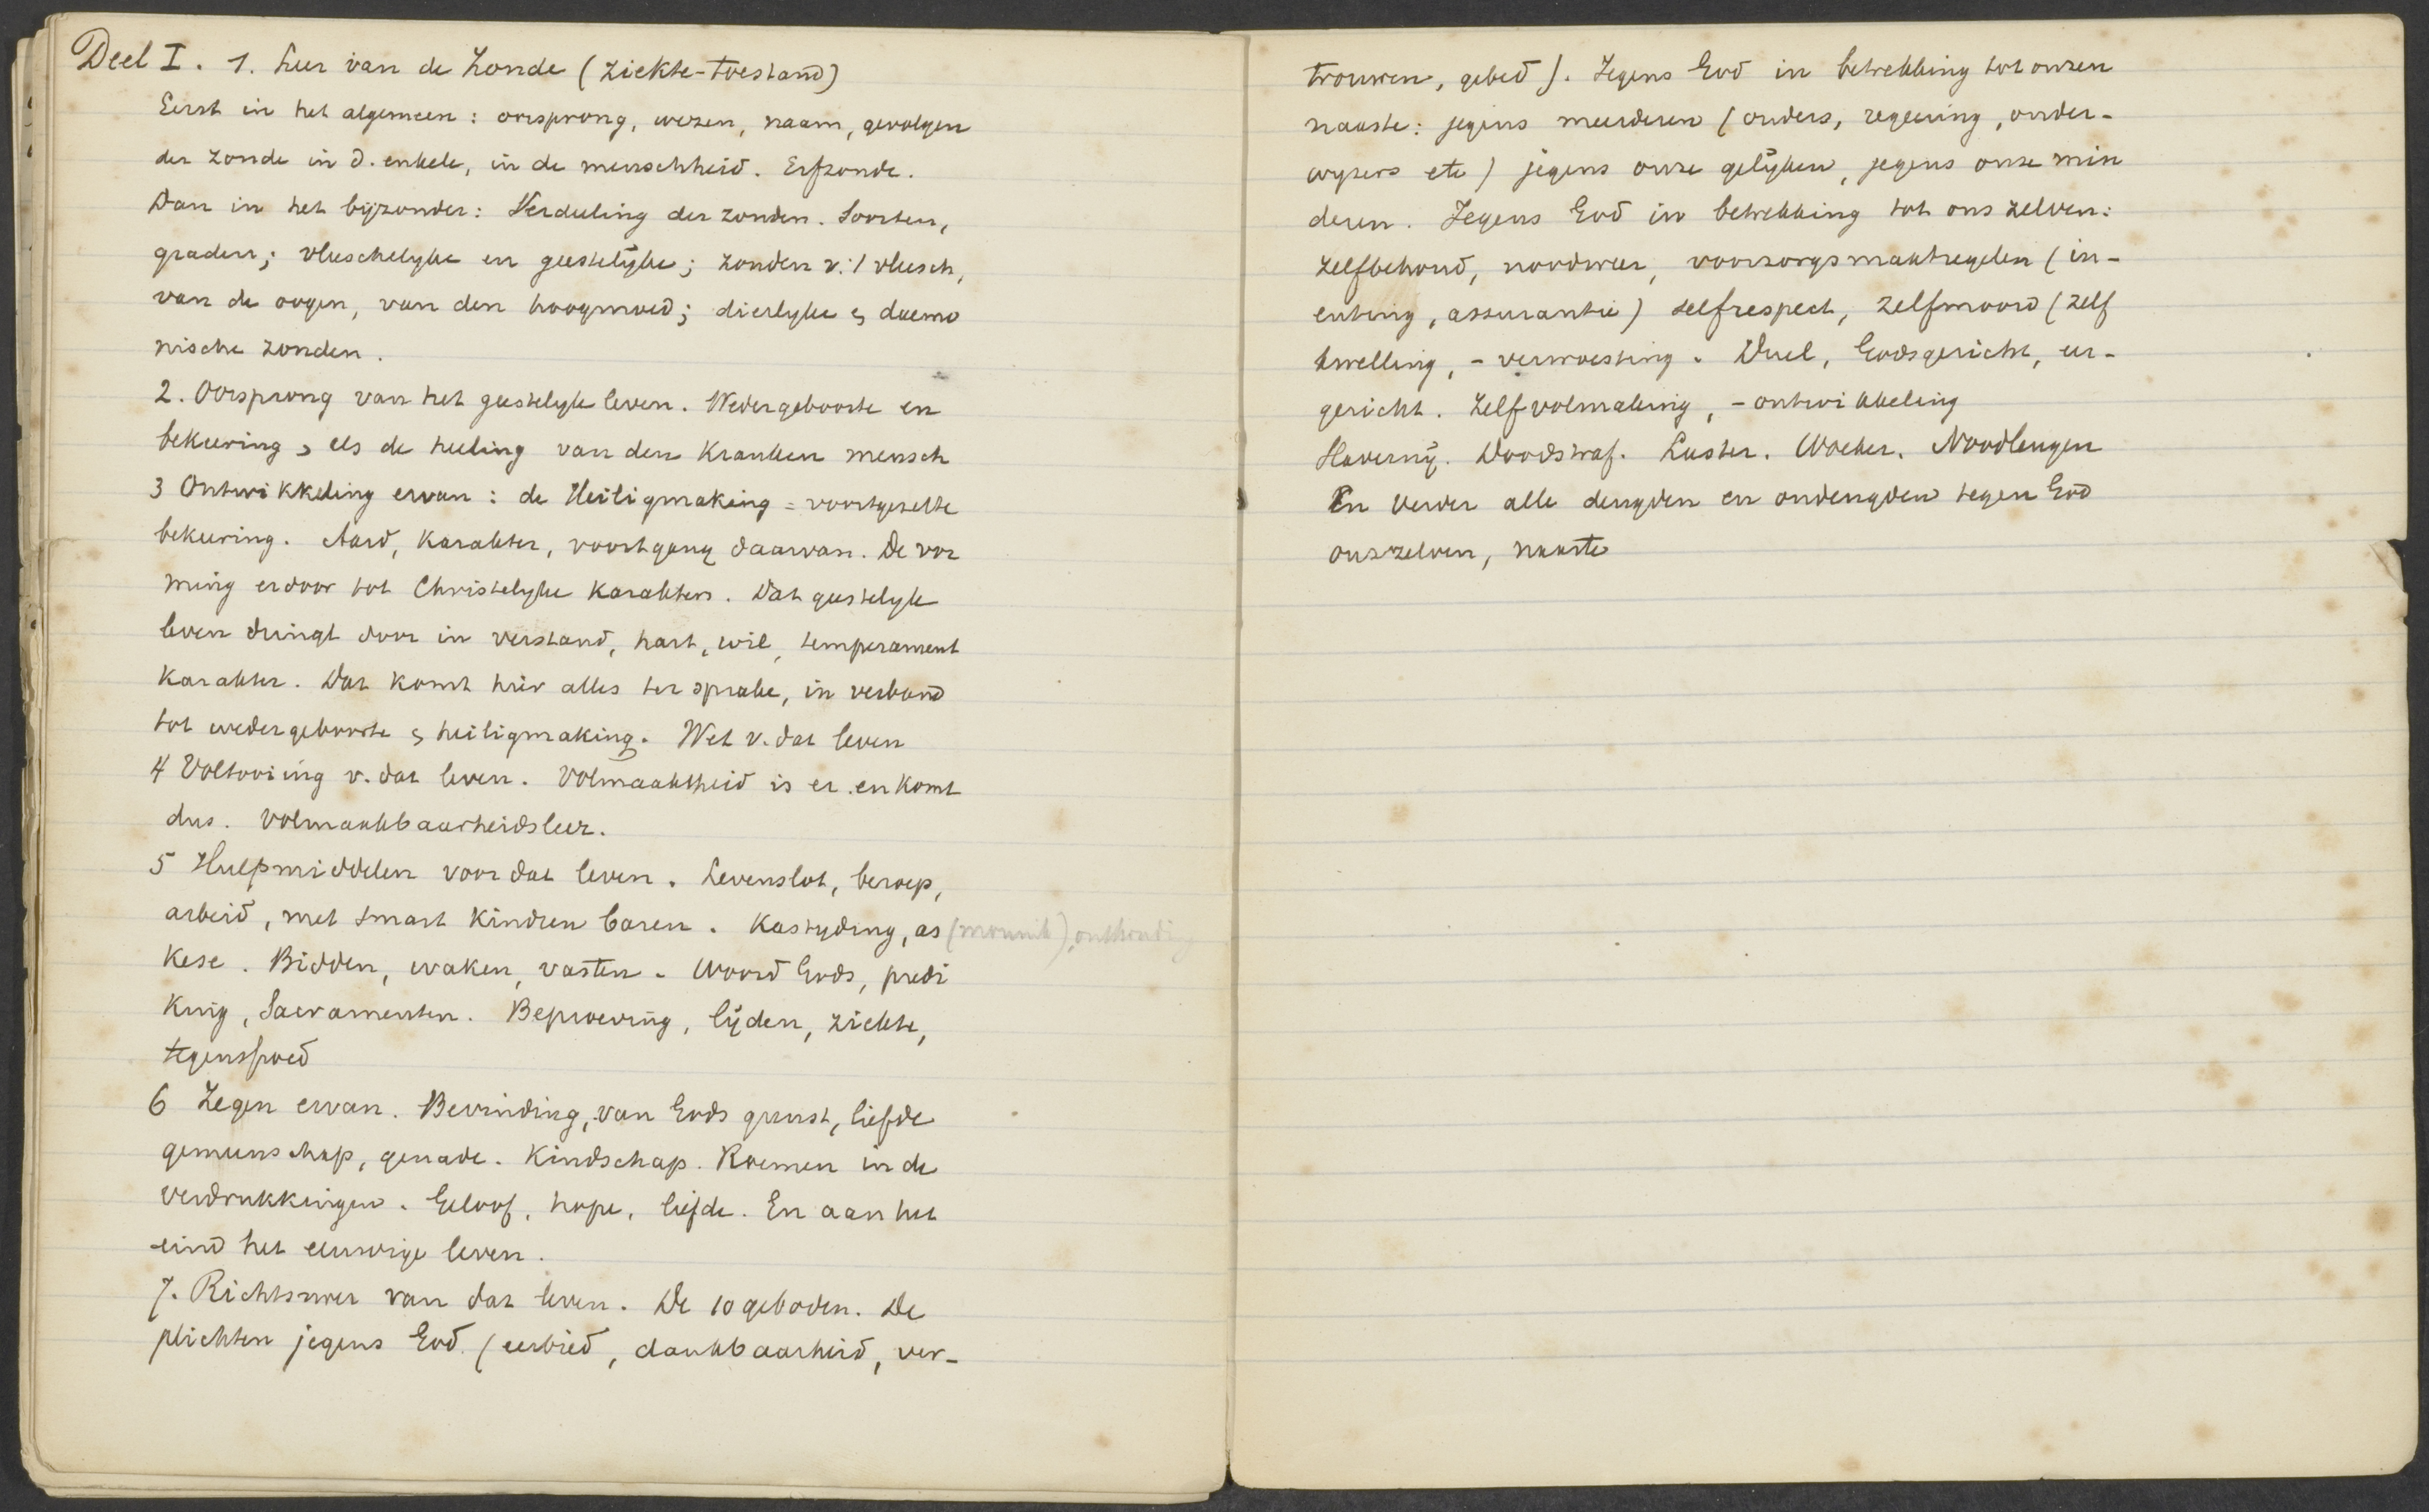 Deel I. 1. Leer van de Zonde (ziekte-toestand)
Eerst in het algemeen: oorsprong, wezen, naam, gevolgen
der zonde in d. enkele, in de menschheid. Erfzonde.
Dan in het bijzonder: Verdeeling der zonden. Soorten,
graden; vleeschelyke en geestelyke; zonden v. 't vleesch,
van de oogen, van den hoogmoed; dierlyke en daemo
nische zonden.
2. Oorsprong van het geestelyk leven. Wedergeboorte en
bekeering, als de heeling van den kranken mensch
3 Ontwikkeling ervan: de Heiligmaking = voortgezette
bekeering. Aard, karakter, voortgang daarvan. De vor
ming erdoor tot Christelyke karakters. Dat geestelyk
leven dringt door in verstand, hart, wil, temperament
karakter. Dat komt hier alles ter sprake, in verband
tot wedergeboorte en heiligmaking. Wet v. dat leven
4 Voltooiing v. dat leven. Volmaaktheid is er en komt
dus. Volmaakbaarheidsleer.
5 Hulpmiddelen voor dat leven. Levenslot, beroep,
arbeid, met smart kindren baren. Kastyding, as (monnik), onthouding
kese. Bidden, waken, vasten. Woord Gods, predi
king, Sacramenten. Beproeving, lijden, ziekte,
tegenspoed
6 Zegen ervan. Bevinding, van Gods gunst, liefde
gemeenschap, genade. Kindschap. Roemen in de
verdrukkingen. Geloof, hope, liefde. En aan het
eind het eeuwige leven.
7. Richtsnoer van dat leven. De 10 geboden. De
plichten jegens God (eerbied, dankbaarheid, ver-
trouwen, gebed). Jegens God in betrekking tot onzen
naaste: jegens meerderen (ouders, regeering, onder-
wyzers etc) jegens onze gelijken, jegens onze min
deren. Jegens God in betrekking tot ons zelven:
zelfbehoud, noodweer, voorzorgsmaatregelen (in-
enting, assurantie) zelfrespect, zelfmoord (zelf
kwelling, - verwoesting. Duel, Godsgericht, eer-
gericht. Zelfvolmaking, - ontwikkeling
Slaverny. Doodstraf. Laster. Woeker. Noodleugen
En verder alle deugden en ondeugden tegen God
onszelven, naaste